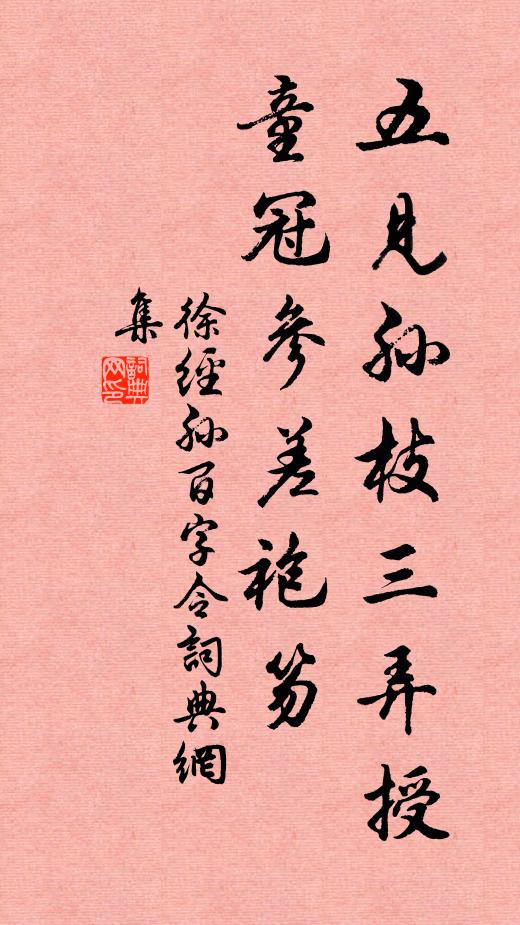 五見孙枝三弄授
童冠參差袍笏
徐經孙百字令詞典網
集
詞典
网印